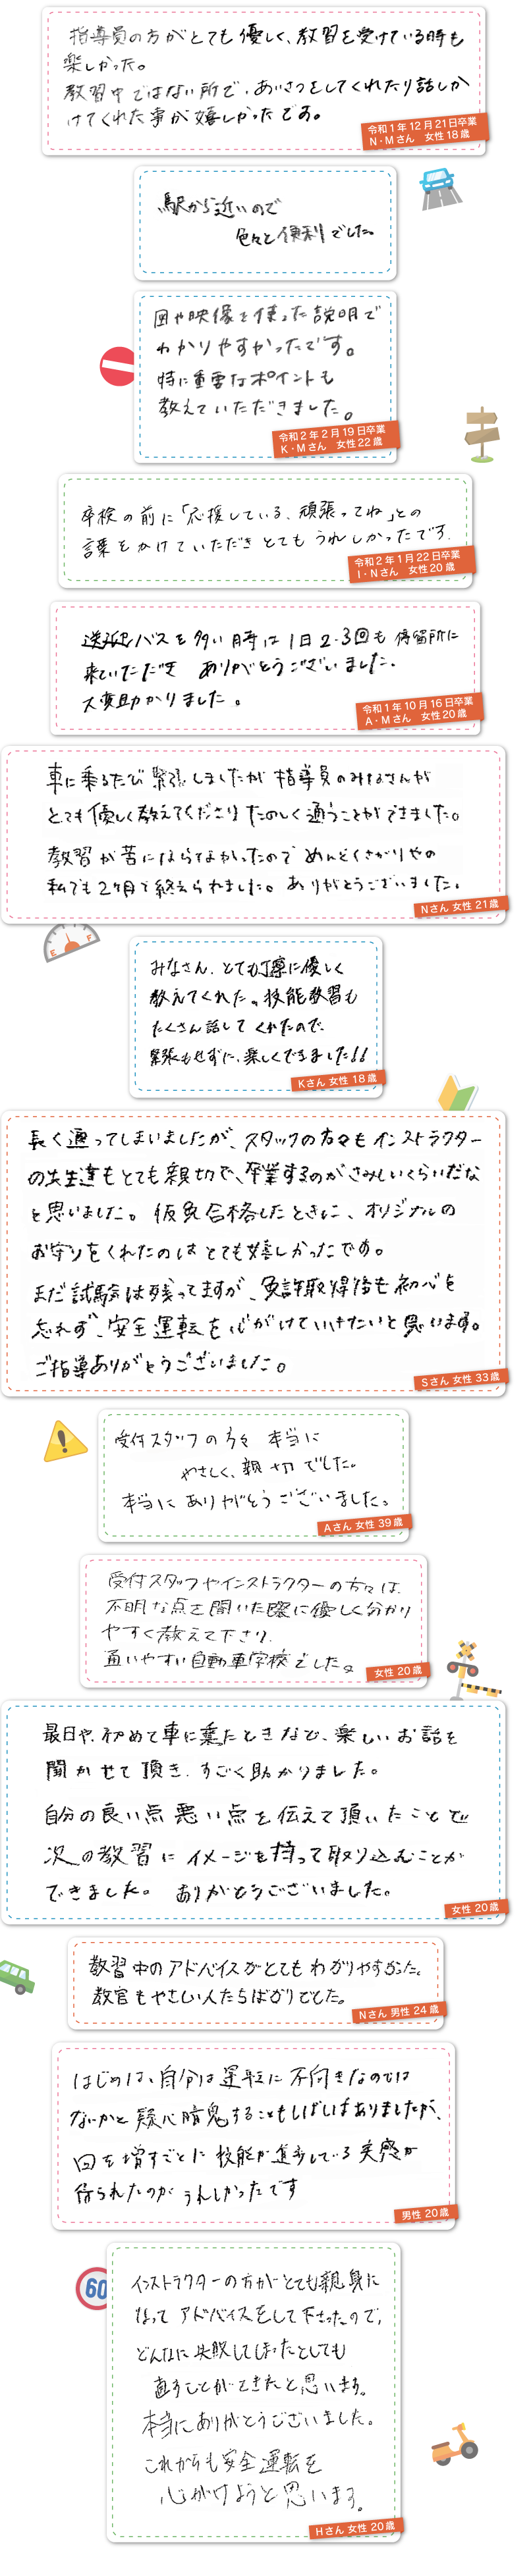 指導員の方がとても優しく、教習を受けている時も
楽しかった。
教習中ではない所で、あいさつをしてくれたり話しか
けてくれた事が嬉しかったです。
令和1年12月21日卒業
N・Mさん 女性18歳
駅から近いので
色々と便利でした。
図や映像を使った説明で
わかりやすかったです。
特に重要なポイントも
教えていただきました。
令和2年2月19日卒業
K・Mさん 女性22歳
卒検の前に「応援している、頑張ってね」との
言葉をかけていただきとてもうれしかったです.
令和2年1月22日卒業
I・Nさん 女性20歳
送迎バスを多い時は1日2-3回も停留所に
来ていただき ありがとうございました.
大変助かりました。
令和1年10月16日卒業
A・Mさん 女性20歳
車に乗るたび緊張しましたが指導員のみなさんが
とても優しく教えてくださりたのしく通うことができました。
教習が苦にならなかったのでめんどくさがりやの
私でも2ヶ月で終えられました。ありがとうございました。
Nさん 女性 21歳
E F
みなさん、とても丁寧に優しく
教えてくれた。技能教習も
たくさん話してくれたので、
緊張もせずに、楽しくできました!!
Kさん 女性 18歳
長く通ってしまいましたが、スタッフの方々もインストラクター
の先生達もとても親切で、卒業するのがさみしいくらいだな
と思いました。仮免合格したときに、オリジナルの
お守りをくれたのはとても嬉しかったです。
まだ試験は残ってますが、免許取得後も初心を
忘れず、安全運転を心がけていきたいと思います。
ご指導ありがとうございました。
Sさん 女性 33歳
受付スタッフの方々 本当に
やさしく、親切でした。
本当にありがとうございました。
Aさん 女性 39歳
受付スタッフやインストラクターの方々は、
不明な点を聞いた際に優しく分かり
やすく教えて下さり、
通いやすい自動車学校でした。
女性 20歳
最日や、初めて車に乗たときなど、楽しいお話を
聞かせて頂き、すごく助かりました。
自分の良い点悪い点を伝えて頂いたことで
次の教習にイメージを持って取り込むことが
できました。 ありがとうございました。
女性 20歳
教習中のアドバイスがとてもわかりやすかった。
教官もやさしい人たちばかりでした。
Nさん 男性 24歳
はじめは、自分は運転に不向きなのでは
ないかと疑心暗鬼することもしばしばありましたが、
回を増すごとに技能が進歩している実感が
得られたのがうれしかったです
男性 20歳
60
インストラクターの方がとても親身に
なってアドバイスをして下さったので、
どんなに失敗してしまったとしても
直すことができたと思います。
本当にありがとうございました。
これからも安全運転を
心がけようと思います。
Hさん 女性 20歳